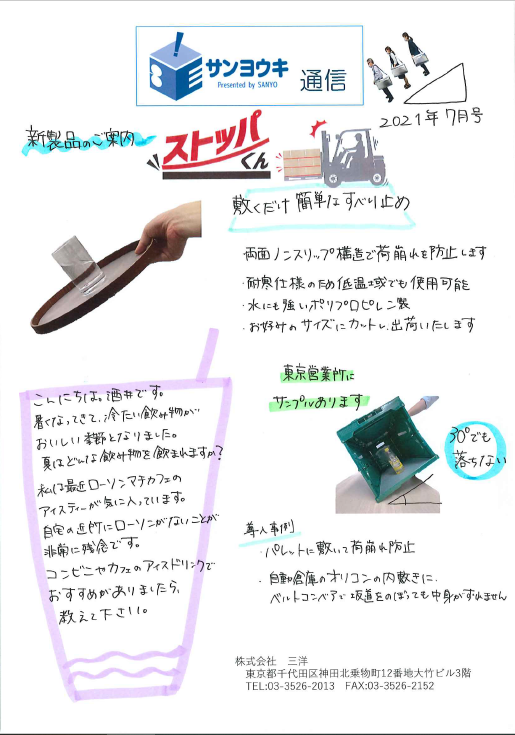 サンヨウキ
Presented by SANYO
通信
2021年7月号
新製品のご案内
ストッパくん
敷くだけ 簡単なすべり止め
両面ノンスリップ構造で荷崩れを防止します
・耐寒仕様のため低温域でも使用可能
・水にも強いポリプロピレン製
・お好みのサイズにカットし、出荷いたします
こんにちは。酒井です。
暑くなってきて、冷たい飲み物が
おいしい季節となりました。
夏はどんな飲み物を飲まれますか?
私は最近ローソンマチカフェの
アイスティーが気に入っています。
自宅の近所にローソンがないことが
非常に残念です。
コンビニやカフェのアイスドリンクで
おすすめがありましたら、
教えて下さい。
東京営業所に
サンプルあります
30°でも
落ちない
導入事例
・パレットに敷いて荷崩れ防止
・自動倉庫のオリコンの内敷きに、
ベルトコンベアで坂道をのぼっても中身がずれません
株式会社 三洋
東京都千代田区神田北乗物町12番地大竹ビル3階
TEL:03-3526-2013 FAX:03-3526-2152